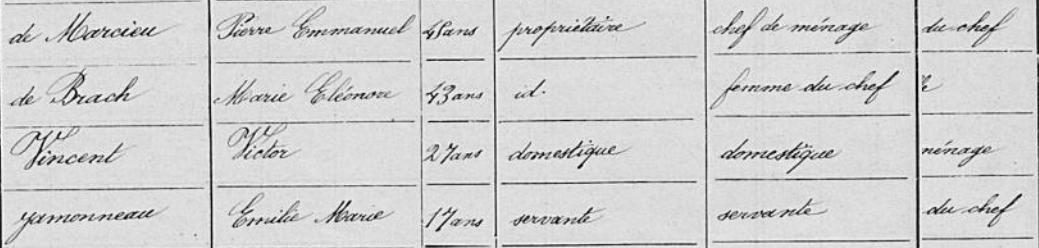 de Marcieu Pierre Emmanuel 48 ans propriétaire chef de ménage du chef
de Brach Marie Eléonore 43 ans id. femme du chef
Vincent Victor 27 ans domestique domestique ménage
Jamonneau Emilie Marie 17 ans servante servante du chef